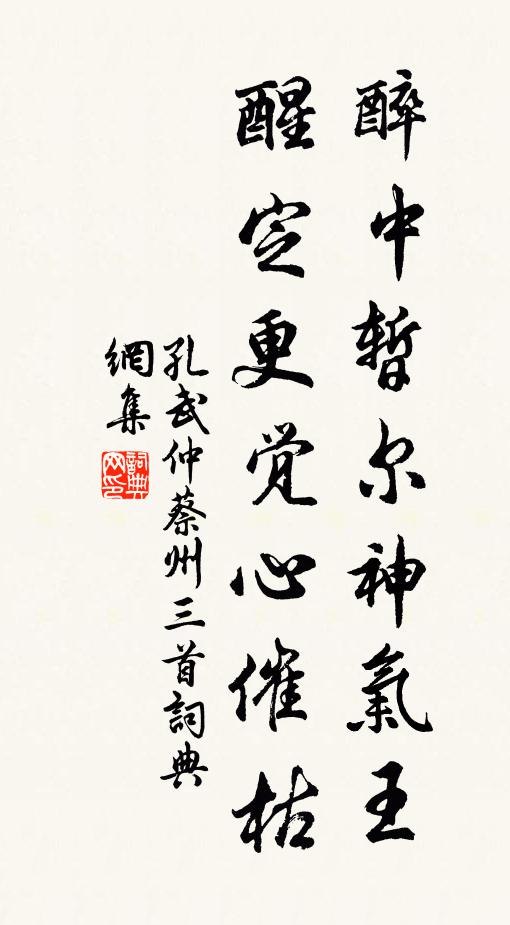 醉中暫尔神氣王
醒定更觉心催枯
孔武仲蔡州三首詞典
網集
詞典网印